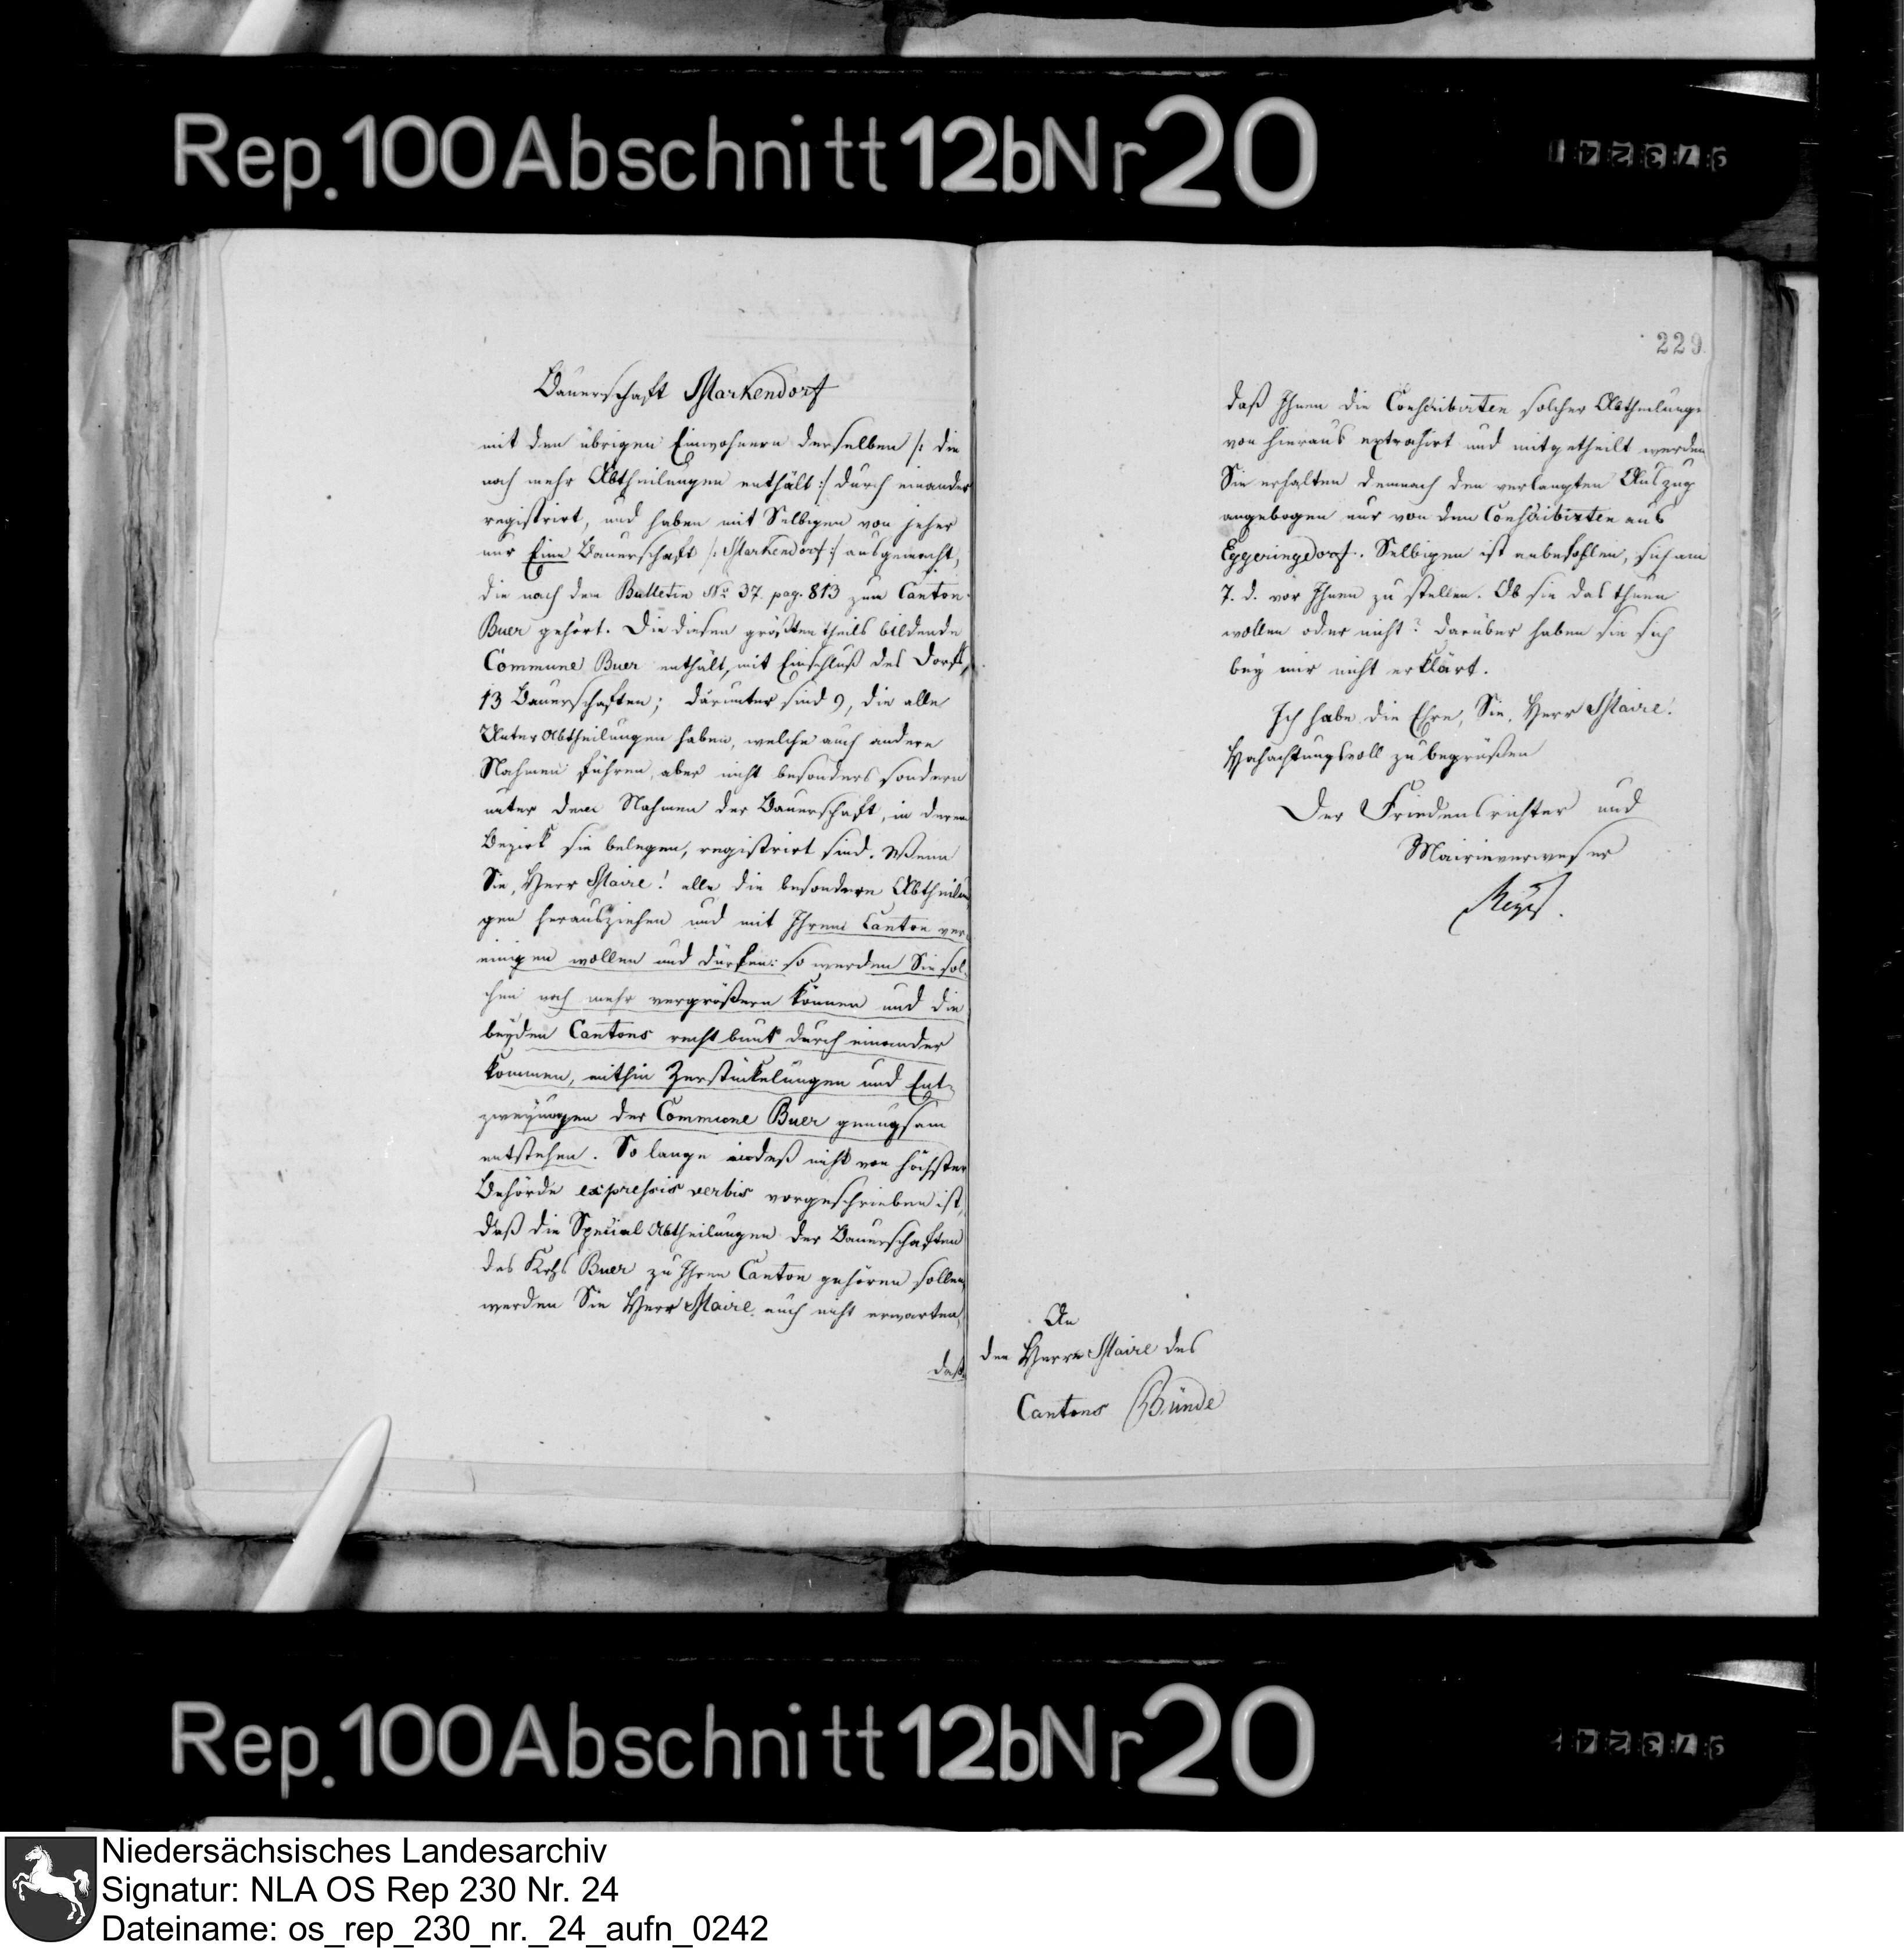 Rep. 100 Abschnitt 12b Nr 20
Bauerschaft Markendorf
mit den übrigen Einwohnern derselben /: die
noch mehr Abtheilungen enthält :/ durch einander
registrirt, und haben mit Selbigen von jeher
nur Eine Bauerschaft /: Markendorf :/ ausgemacht,
die nach dem Bulletin No. 37. pag. 813 zum Canton
Buer gehört. Die diesen größtentheils bildende
Commune Buer enthält, mit Einschluß des Dorfs,
13 Bauerschaften; darunter sind 9, die alle
Unter Abtheilungen haben, welche auch andere
Nahmen führen, aber nicht besonders sondern
unter dem Nahmen der Bauerschaft, in deren
Bezirk sie belegen, registrirt sind. Wenn
Sie, Herr Maire! alle die besondern Abtheilun
gen herausziehen und mit Ihrem Canton ver-
einigen wollen und dürfen: so werden Sie sol-
chen noch mehr vergrößern können und die
beyden Cantons recht bunt durch einander
kommen, mithin Zerstückelungen und Ent-
zweyungen der Commune Buer genugsam
entstehen. So lange indeß nicht von höchster
Behörde expressis verbis vorgeschrieben ist,
daß die Special Abtheilungen der Bauerschaften
des Kchs Buer zu Ihrem Canton gehören sollen,
werden Sie Herr Maire auch nicht erwarten,
daß
229
daß Ihnen die Conscribirten solcher Abtheilunge
von hieraus extrahirt und mitgetheilt werden
Sie erhalten demnach den verlangten Auszug
angebogen nur von den Conscribirten aus
Eggeringdorf. Selbigen ist anbefohlen, sich am
7. d. vor Ihnen zu stellen. Ob sie das thuen
wollen oder nicht? darüber haben sie sich
bey mir nicht erklärt.
Ich habe die Ehre, Sie, Herr Maire!
Hochachtungsvoll zu begrüßen
Der Friedensrichter und
Mairieverweser
An
den Herrn Maire des
Cantons Bünde
Rep. 100 Abschnitt 12b Nr 20
Niedersächsisches Landesarchiv
Signatur: NLA OS Rep 230 Nr. 24
Dateiname: os_rep_230_nr._24_aufn_0242